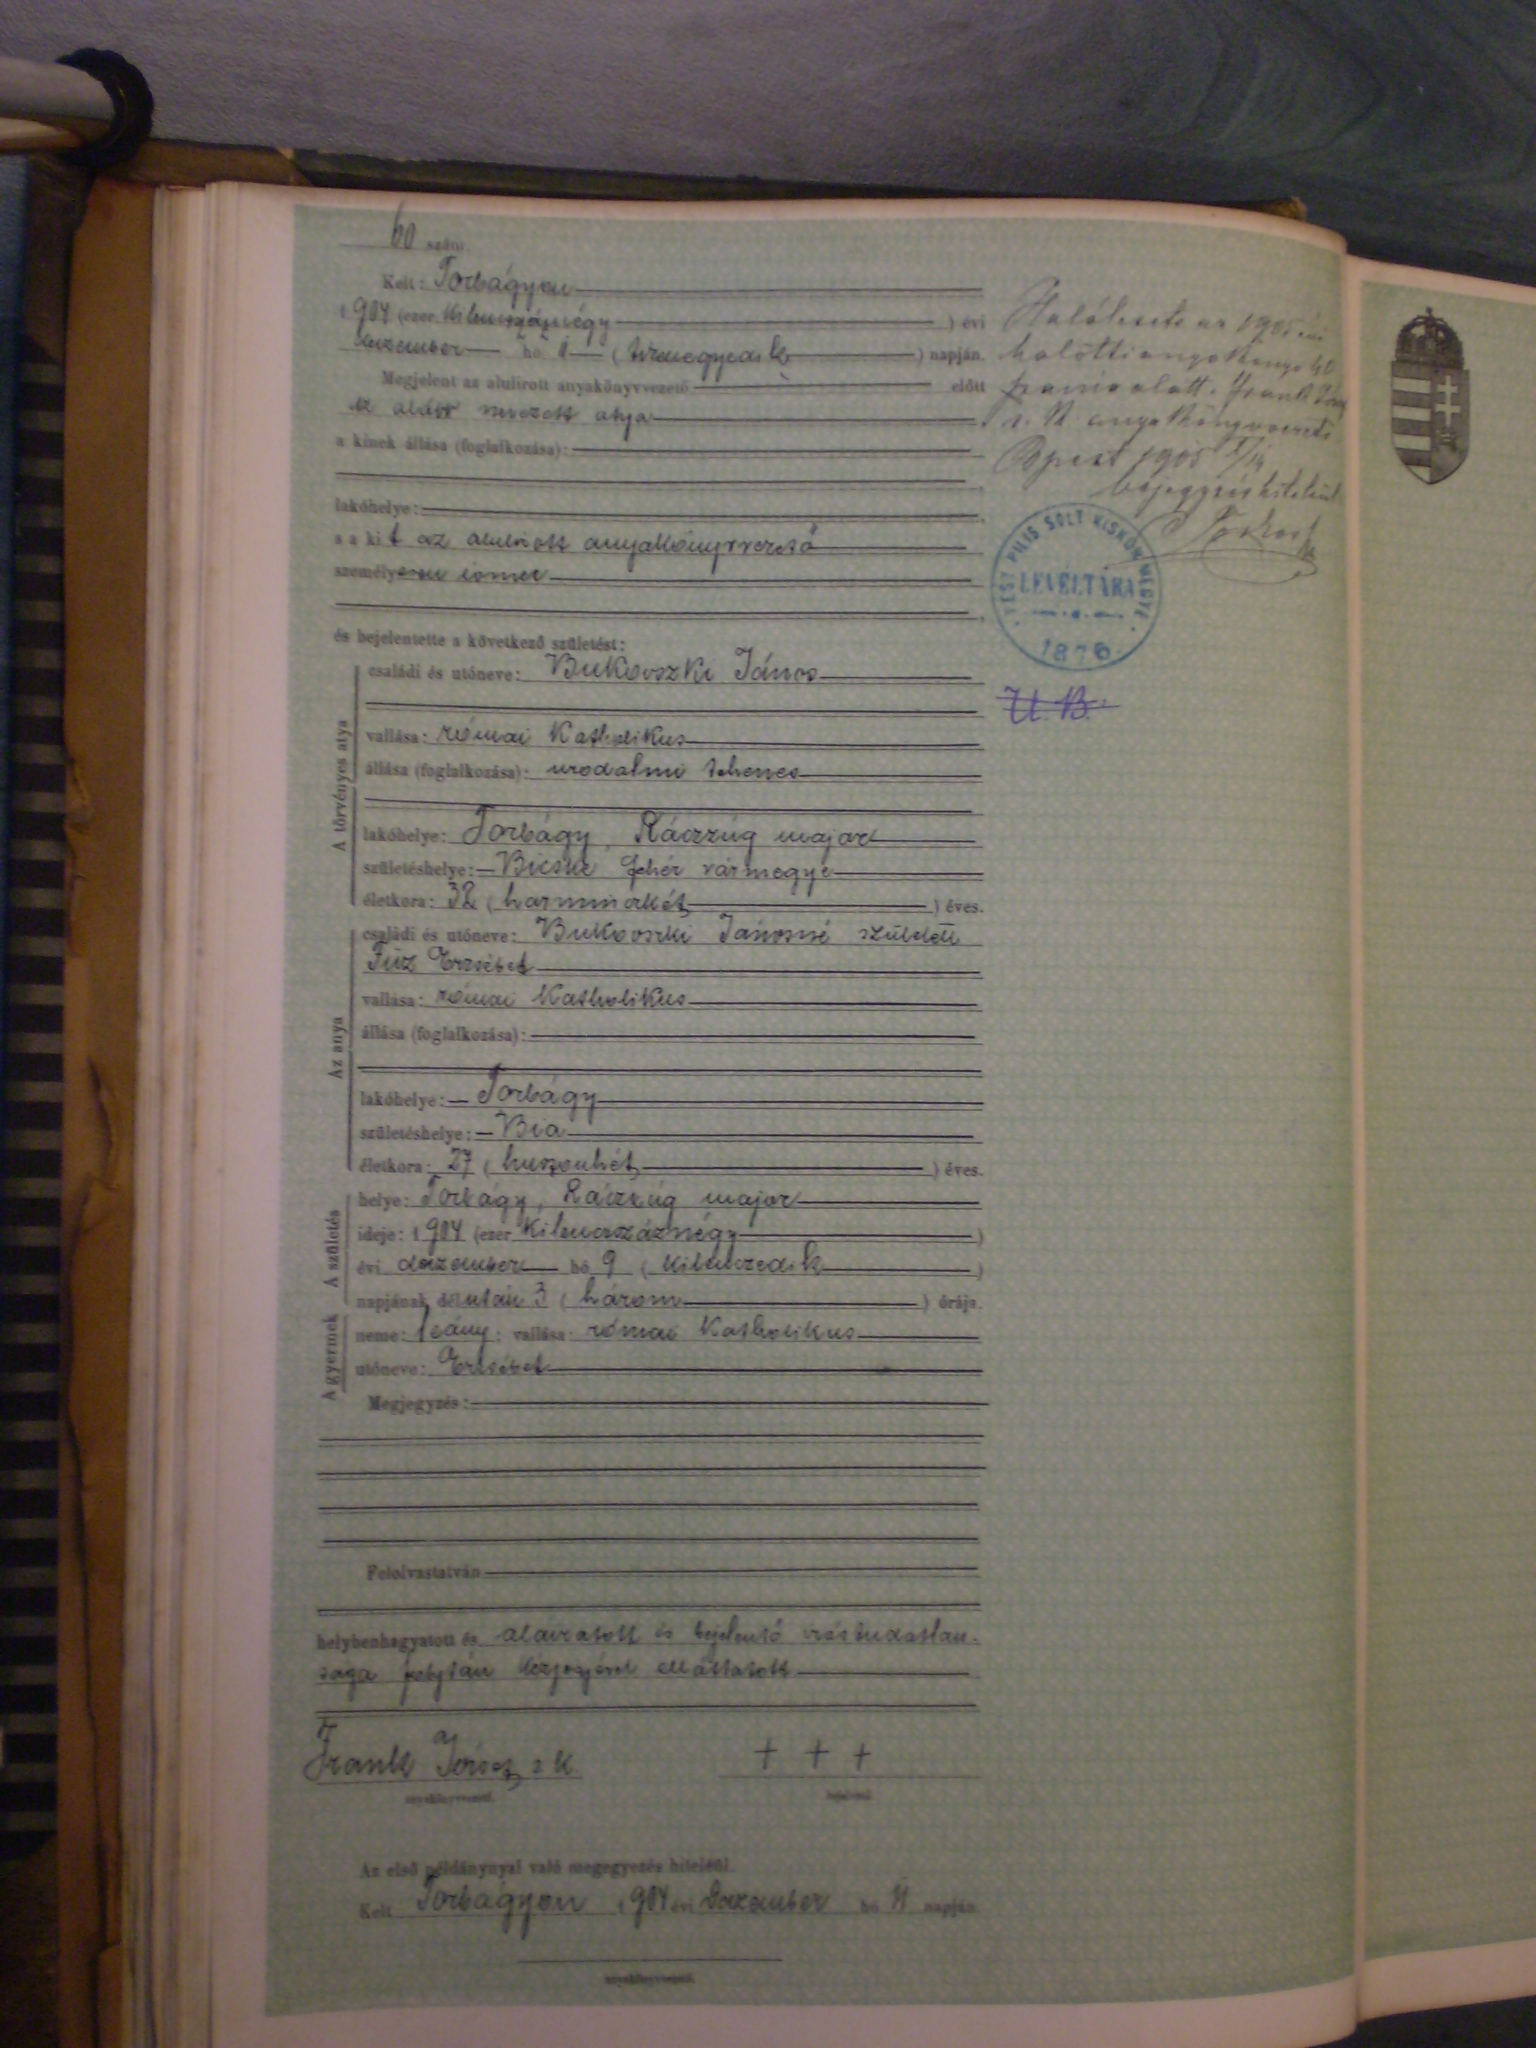 60 szám.
Kelt: Torbágyon
1904 (ezer kilencszáznégy) évi
deczember hó 11 (tizenegyedik) napján.
Megjelent az alulirott anyakönyvvezető előtt
az alább nevezett atyja
a kinek állása (foglalkozása):
lakóhelye:
s a kit az alulirott anyakönyvvezető
személyesen ismer
és bejelentette a következő születést:
A törvényes atya
családi és utóneve: Bukovszki János
vallása: római katholikus
állása (foglalkozása): urodalmi tehenes
lakóhelye: Torbágy, Ráczzúg major
születéshelye: Bicske Fehér vármegye
életkora: 32 (harminczkét) éves.
Az anya
családi és utóneve: Bukovszki Jánosné született
Füz Erzsébet
vallása: római katholikus
állása (foglalkozása):
lakóhelye: Torbágy
születéshelye: Bia
életkora: 27 (huszonhét) éves.
A születés
helye: Torbágy, Ráczzúg major
ideje: 1904 (ezer kilencszáznégy)
évi deczember hó 9 (kilenczedik)
napjának délután 3 (három) órája.
A gyermek
neme: leány; vallása: római katholikus
utóneve: Erzsébet
Megjegyzés:
Felolvastatván
helybenhagyatott és aláiratott és bejelentő irástudatlan-
sága folytán kézjegyével elláttatott
Frank József s. k.
anyakönyvvezető.
+ + +
bejelentő.
Az első példánynyal való megegyezés hiteléül.
Kelt Torbágyon 1904 évi Deczember hó 11 napján
anyakönyvvezető.
Halálesete az 1905 évi
halotti anyakönyv
szám alatt. Frank
s. k. anyakönyvvezető
Bpest 1905
bejegyzés hiteléül
PEST PILIS SOLT KISKUN MEGYE
LEVÉLTÁRA
1876
U. B.